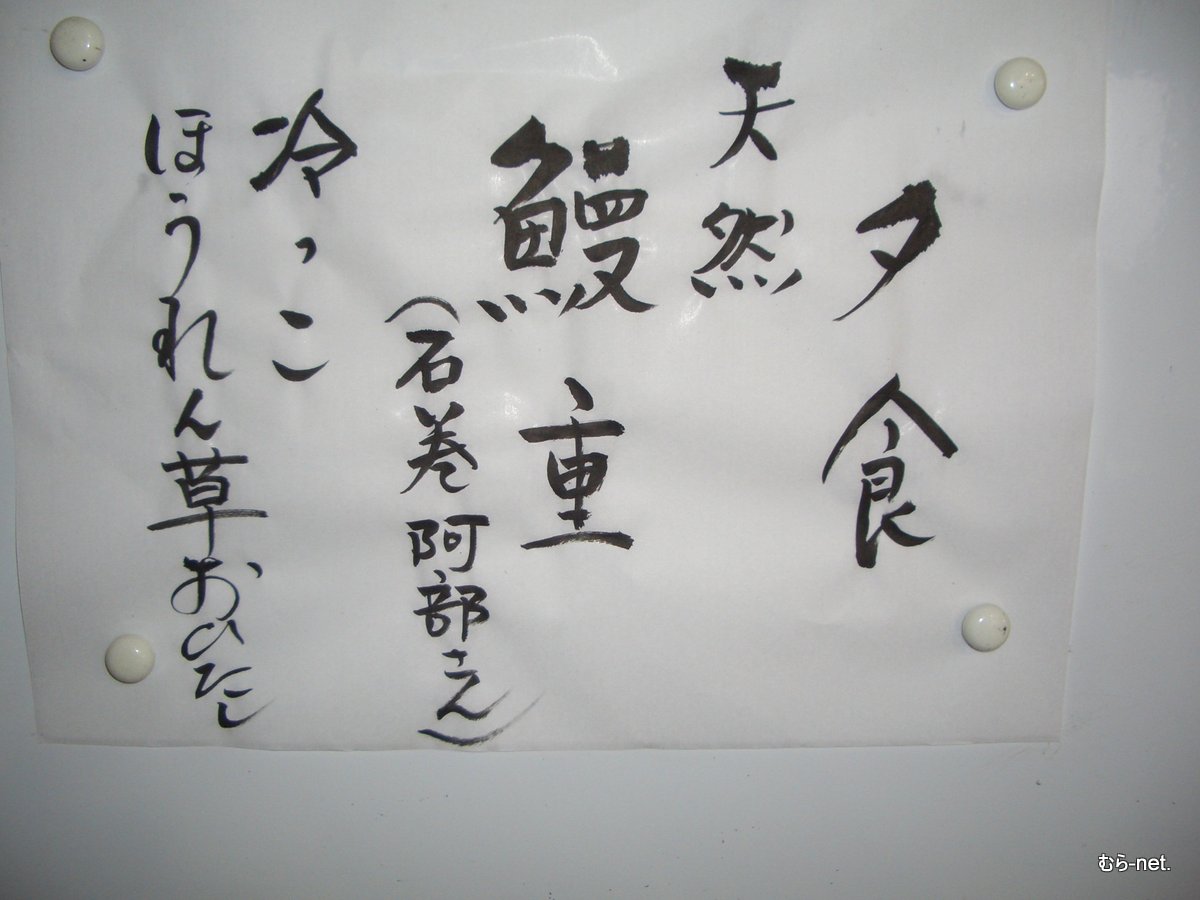 夕食
天然
鰻重
(石巻阿部さん)
冷っこ
ほうれん草おひたし
むら-net.